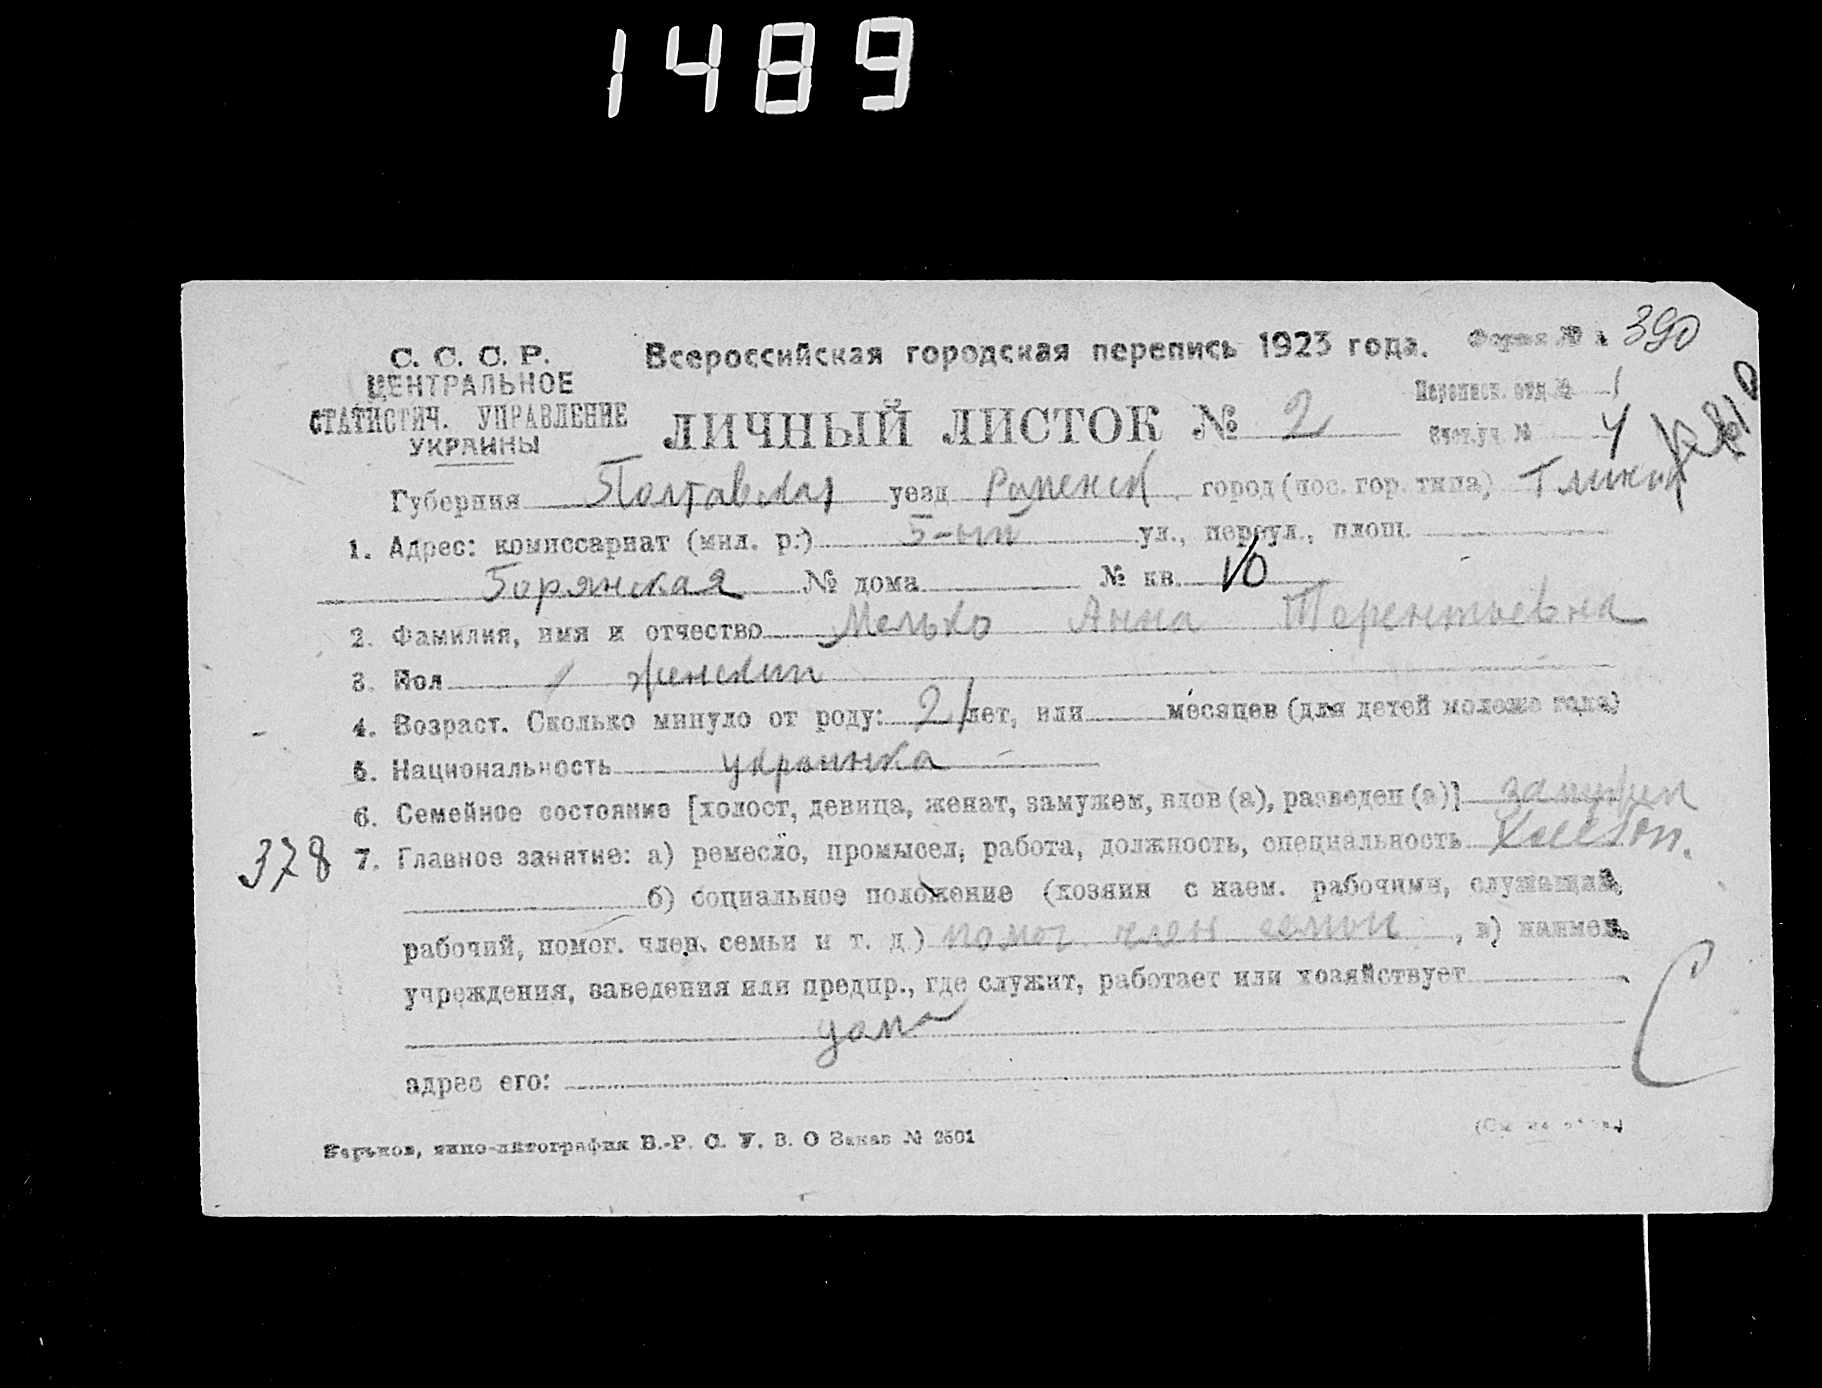 1489
С. С. С. Р.
ЦЕНТРАЛЬНОЕ
СТАТИСТИЧ. УПРАВЛЕНИЕ
УКРАИНЫ
Всероссийская городская перепись 1923 года.
Форма № 390
ЛИЧНЫЙ ЛИСТОК № 2
Переписн. отд. № 1
Счет. уч. № 4
Губерния Полтавская уезд Роменск город (пос. гор. типа)
1. Адрес: комиссариат (мил. р.) 5-ый ул., переул., площ.
Борянская № дома № кв. 10
2. Фамилия, имя и отчество Мелько Анна Терентьевна
3. Пол женский
4. Возраст. Сколько минуло от роду: 21 лет, или месяцев (для детей моложе года)
5. Национальность украинка
6. Семейное состояние [холост, девица, женат, замужем, вдов (а), разведен (а)] замужем
378 7. Главное занятие: а) ремесло, промысел, работа, должность, специальность
б) социальное положение (хозяин с наем. рабочими, служащий,
рабочий, помог. член. семьи и т. д.) помог член семьи, в) наимен.
учреждения, заведения или предпр., где служит, работает или хозяйствует
дома
адрес его:
Харьков, типо-литография В.-Р. С. У. В. О Заказ № 2501